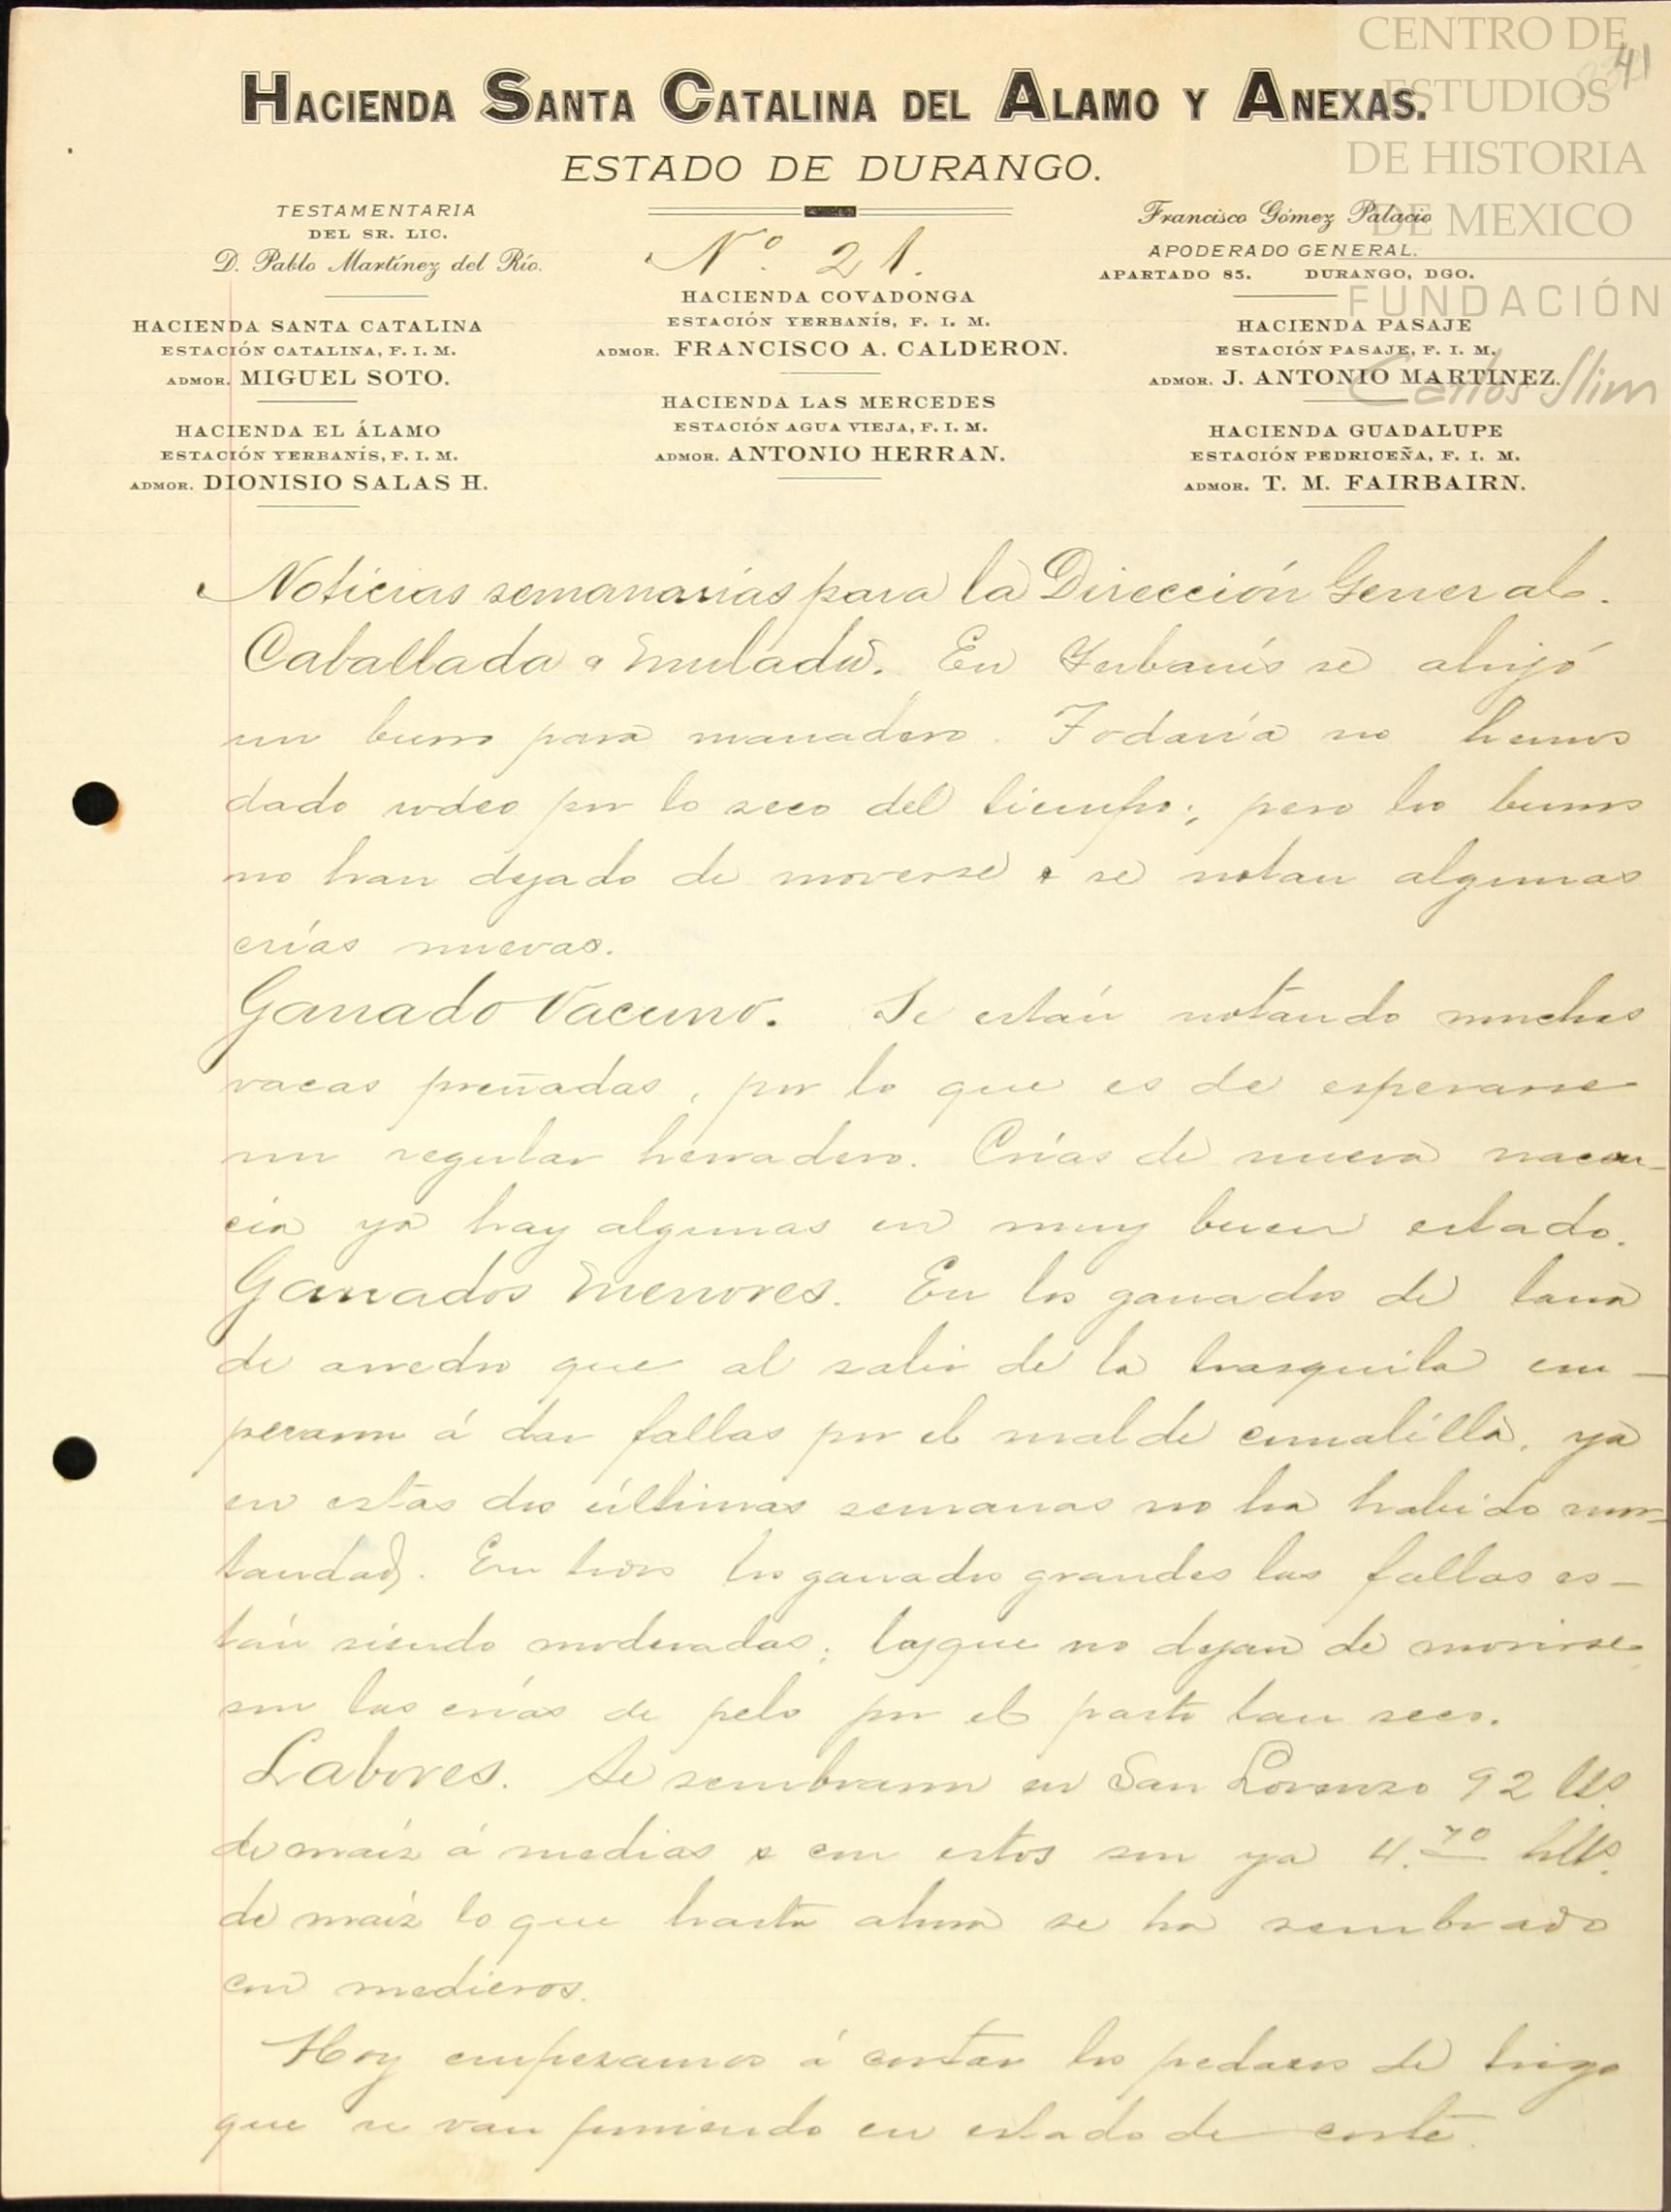 CENTRO DE
ESTUDIOS
DE HISTORIA
DE MEXICO
FUNDACIÓN
Carlos Slim
41
HACIENDA SANTA CATALINA DEL ALAMO Y ANEXAS.
ESTADO DE DURANGO.
TESTAMENTARIA
DEL SR. LIC.
D. Pablo Martínez del Río.
HACIENDA SANTA CATALINA
ESTACIÓN CATALINA, F. I. M.
ADMOR. MIGUEL SOTO.
HACIENDA EL ÁLAMO
ESTACIÓN YERBANÍS, F. I. M.
ADMOR. DIONISIO SALAS H.
Nº. 21.
HACIENDA COVADONGA
ESTACIÓN YERBANÍS, F. I. M.
ADMOR. FRANCISCO A. CALDERON.
HACIENDA LAS MERCEDES
ESTACIÓN AGUA VIEJA, F. I. M.
ADMOR. ANTONIO HERRAN.
Francisco Gómez Palacio
APODERADO GENERAL.
APARTADO 85. DURANGO, DGO.
HACIENDA PASAJE
ESTACIÓN PASAJE, F. I. M.
ADMOR. J. ANTONIO MARTINEZ.
HACIENDA GUADALUPE
ESTACIÓN PEDRICEÑA, F. I. M.
ADMOR. T. M. FAIRBAIRN.
Noticias semanarias para la Dirección General.
Caballada y mulada. En Yerbanís se ahijó
un burro para manadero. Todavía no hemos
dado rodeo por lo seco del tiempo; pero los burros
no han dejado de moverse y se notan algunas
crías nuevas.
Ganado Vacuno. Se están notando muchas
vacas preñadas, por lo que es de esperarse
un regular herradero. Crías de nueva nacen-
cia ya hay algunas en muy buen estado.
Ganados Menores. En los ganados de lana
de arredro que al salir de la trasquila em-
pezaron á dar fallas por el mal de cunalilla, ya
en estas dos últimas semanas no ha habido mor-
tandad. En todos los ganados grandes las fallas es-
tán siendo moderadas; las que no dejan de morirse
son las crías de pelo por el pasto tan seco.
Labores. Se sembraron en San Lorenzo 92 lts.
de maíz á medias y con estos son ya 4.70 hlts.
de maíz lo que hasta ahora se ha sembrado
con medieros.
Hoy empezamos á cortar los pedazos de trigo
que se van poniendo en estado de corte.